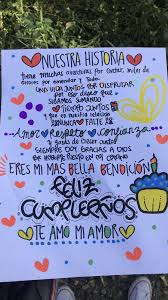 NUESTRA HISTORIA
tiene muchas aventuras por contar, miles de
errores por enmendar y toda
UNA VIDA JUNTOS POR DISFRUTAR
por eso deseo que
SIGAMOS SUMANDO
TIEMPO JUNTOS
que en nuestra relación
NUNCA FALTE EL
Amor Respeto confianza
y ganas de crecer juntos
SIEMPRE DOY GRACIAS A DIOS
EN MI CAMINO
ERES MI MAS BELLA BENDICIÓN
FELIZ
CUMPLEAÑOS
TE AMO MI AMOR